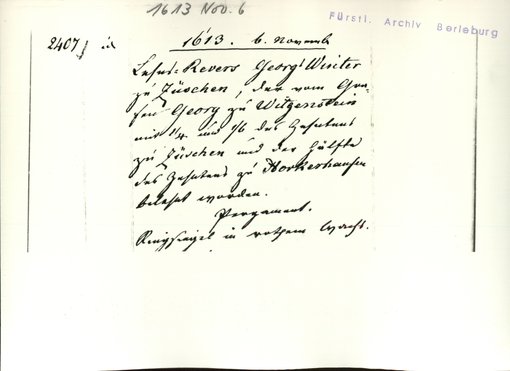 1613 Nov. 6
Fürstl. Archiv Berleburg
2407
1613. 6. Novemb
Lehns-Revers Georg Winter
zu Züschen, der vom Gra-
fen Georg zu Witgenstein
mit 1/4 und 1/6 des Zehntens
zu Züschen und der Hälfte
des Zehntens zu Horkerhausen
belehnt worden.
Pergament.
Ringsiegel in rothem Wachs.